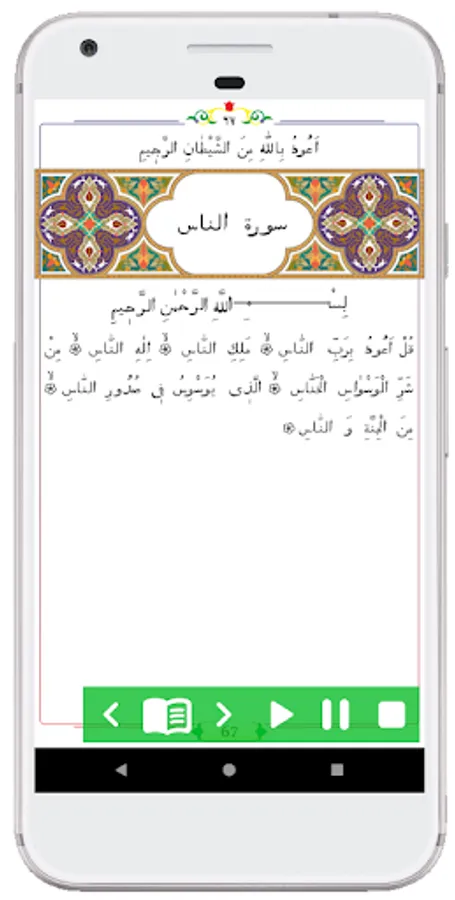 ٦٧
اَعُوذُ بِاللّٰهِ مِنَ الشَّيْطَانِ الرَّجِيمِ
سورة الناس
بِسْــــــمِ اللَّهِ الرَّحْمٰنِ الرَّحِيمِ
قُلْ اَعُوذُ بِرَبِّ النَّاسِۙ مَلِكِ النَّاسِۙ اِلٰهِ النَّاسِۙ مِنْ
شَرِّ الْوَسْوَاسِ الْخَنَّاسِۙ اَلَّذِى يُوَسْوِسُ فِى صُدُورِ النَّاسِۙ
مِنَ الْجِنَّةِ وَ النَّاسِ
67